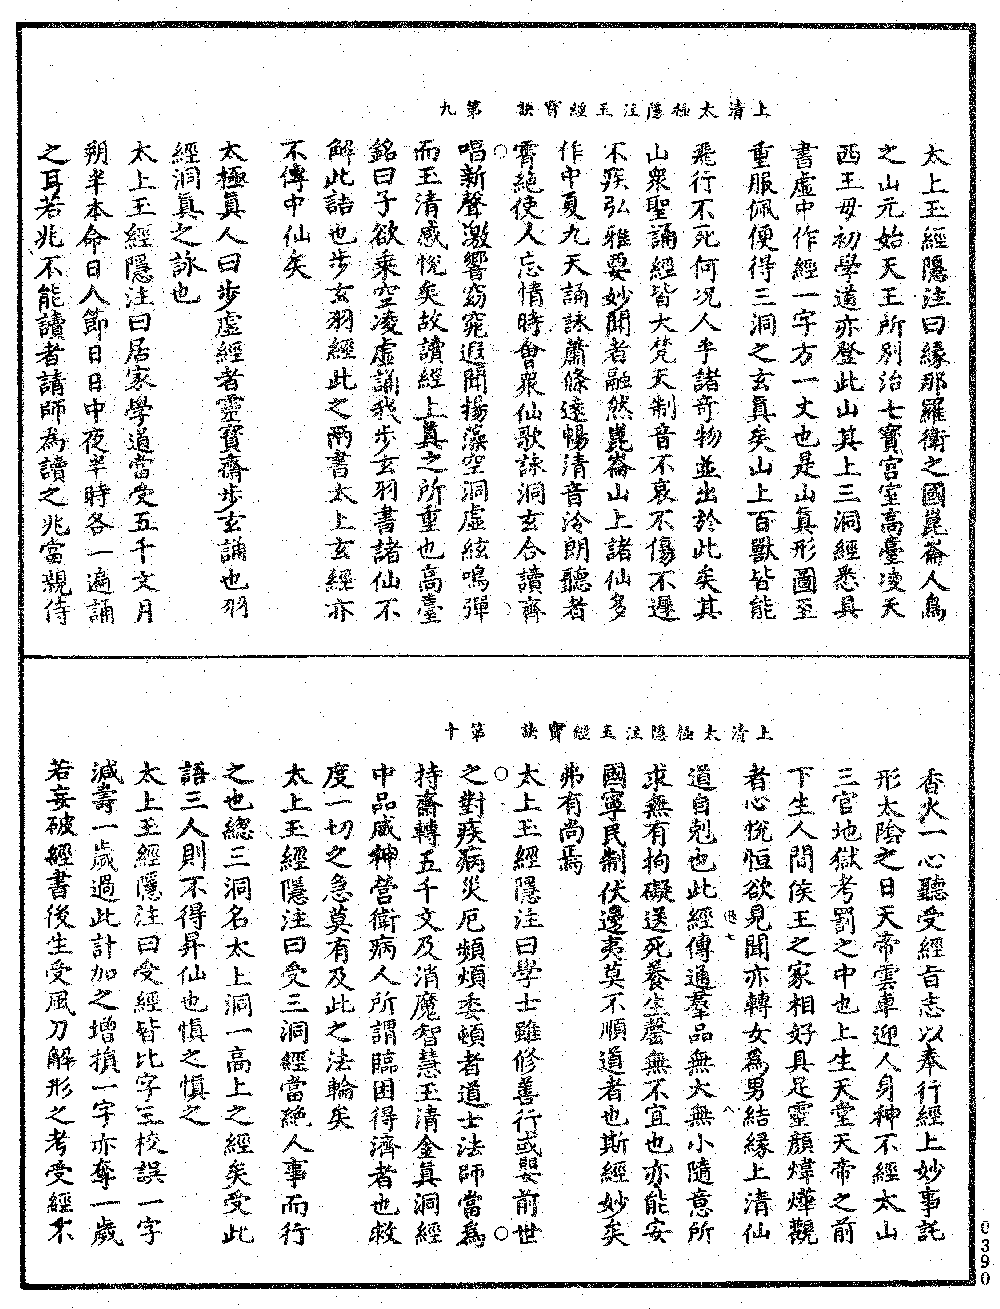 上清太極隱注玉經寶訣　第九
太上玉經隱注曰緣那羅衛之國崑崙人鳥
之山元始天王所別治七寶宮室高臺凌天
西王母初學道亦登此山其上三洞經悉具
書虛中作經一字方一丈也是山真形圖至
重服佩便得三洞之玄真矣山上百獸皆能
飛行不死何況人乎諸奇物並出於此矣其
山衆聖誦經皆大梵天制音不哀不傷不遲
不疾弘雅要妙聞者融然崑崙山上諸仙多
作中夏九天誦詠蕭條遠暢清音泠朗聽者
霄絶使人忘情時會衆仙歌詠洞玄合讀齊
唱新聲激響窈窕遐聞揚藻空洞虛絃鳴彈
而玉清感悅矣故讀經上真之所重也高臺
銘曰子欲乘空凌虛誦我步玄羽書諸仙不
解此詰也步玄羽經此之兩書太上玄經亦
不傳中仙矣
太極真人曰步虛經者靈寶齋步玄誦也羽
經洞真之詠也
太上玉經隱注曰居家學道當受五千文月
朔半本命日八節日日中夜半時各一遍誦
之耳若兆不能讀者請師為讀之兆當親侍
上清太極隱注玉經寶訣　第十
香火一心聽受經旨志以奉行經上妙事託
形太陰之日天帝雲車迎人身神不經太山
三官地獄考罰之中也上生天堂天帝之前
下生人間侯王之家相好具足靈顏煒燁觀
者心悅恒欲見聞亦轉女為男結緣上清仙
道自剋也此經傳通羣品無大無小隨意所
求無有拘礙送死養生罄無不宜也亦能安
國寧民制伏邊夷莫不順道者也斯經妙矣
弗有尚焉
太上玉經隱注曰學士雖修善行或嬰前世
之對疾病災厄頻煩委頓者道士法師當為
持齋轉五千文及消魔智慧玉清金真洞經
中品咸神營衛病人所謂臨困得濟者也救
度一切之急莫有及此之法輪矣
太上玉經隱注曰受三洞經當絶人事而行
之也總三洞名太上洞一高上之經矣受此
語三人則不得昇仙也慎之慎之
太上玉經隱注曰受經皆比字三校誤一字
減壽一歲過此計加之增損一字亦奪一歲
若妄破經書後生受風刀解形之考受經不
0390